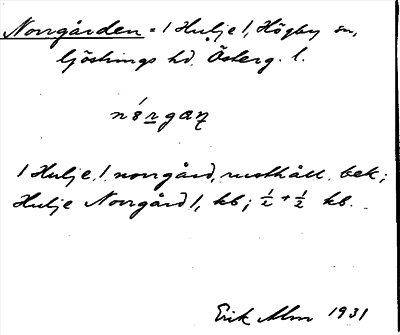 Norrgården = / Hulje /, Högby sn,
Göstrings hd. Österg. l.
/ Hulje / norrgård, rusthåll. bek;
Hulje Norrgård /, kb; ½ + ½ kb.
Erik Alm 1931